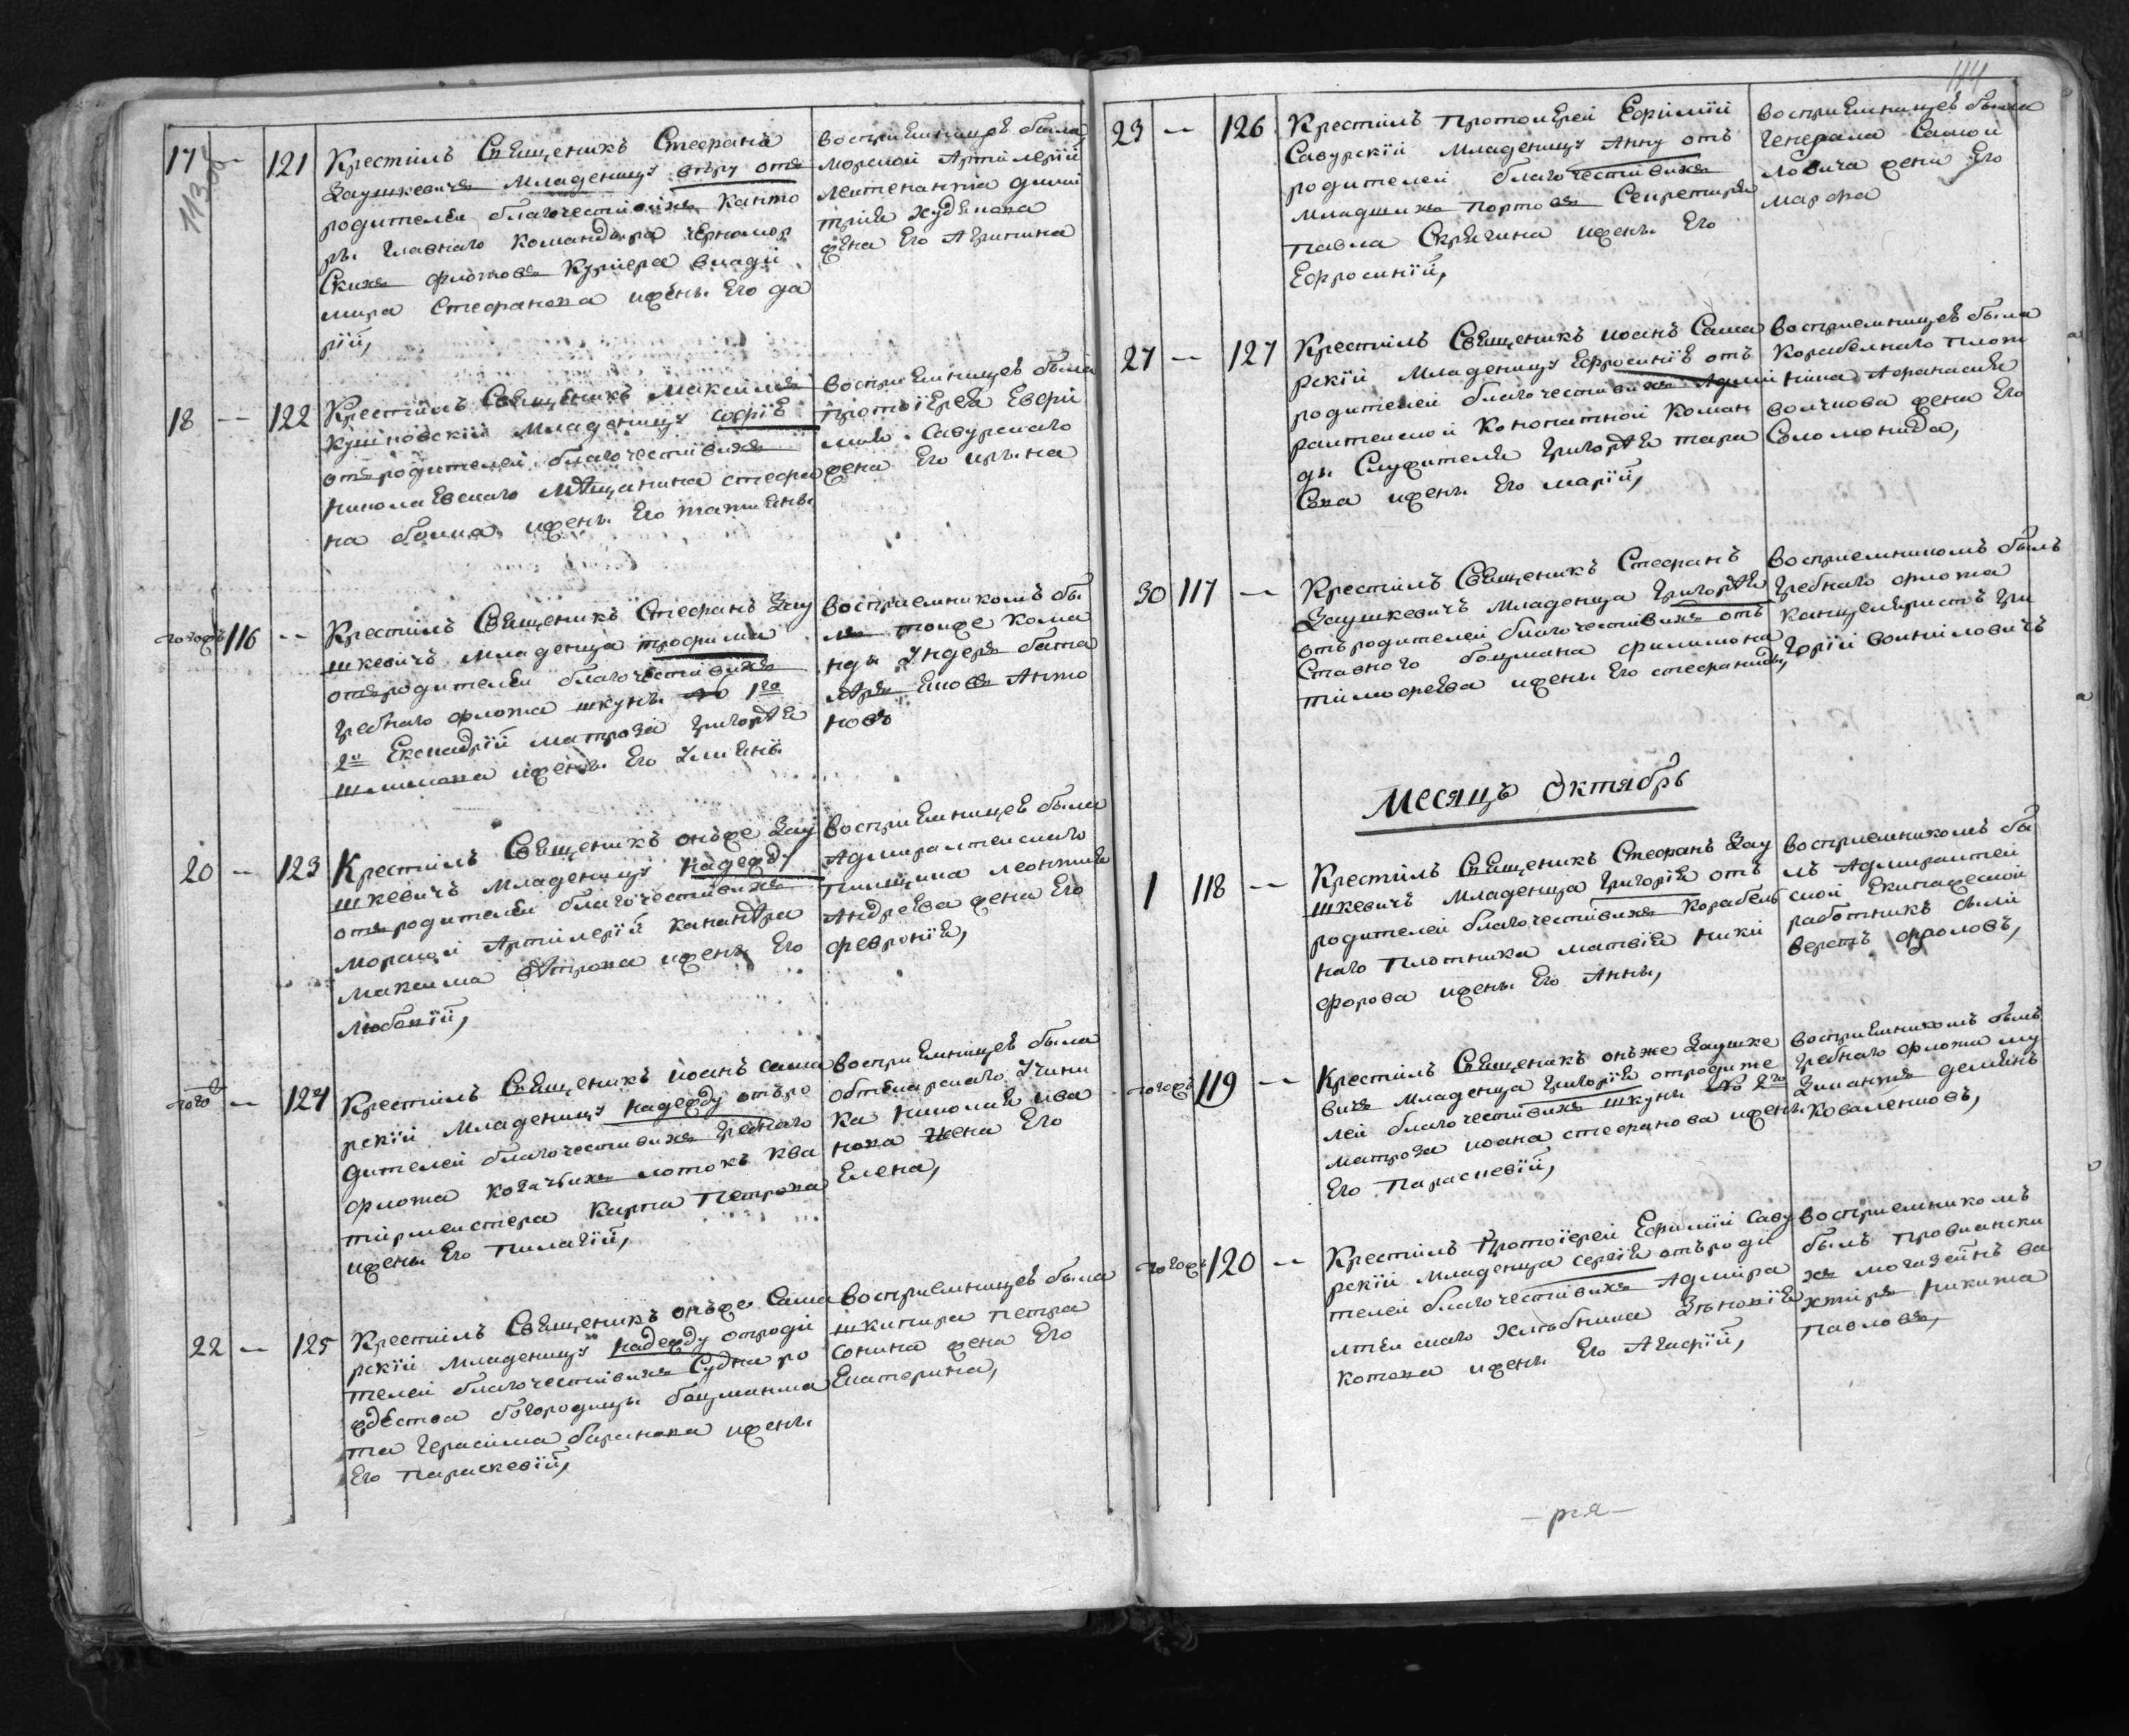 113об
17 -- 121 Крестилъ Священикъ Стефанъ
Заушкевичъ младеницу вѣру отъ
родителей благочестивихъ канто
ры главнаго командира черномор
скихъ флотовъ курiера влади
мира Стефанова ижены Его да
рiй,
воспрiемницеѣ была
морской Артилерiй
лейтенанта дими
трiя худикова
жена Его Агрипина
18 -- 122 Крестилъ Священикъ максимъ
младеницу софiѣ
отъродителей благочестивихъ
николаевскаго мѣщанина стефа
на ижены Его татияны
воспрiемницеѣ была
протоiерея Евфи
мия Савурскаго
жена Его ирина
тогожъ 116 -- Крестилъ Священикъ Стефанъ Зау
шкевичъ младенца трофима
отъродителей благочестивихъ
гребнаго флота шкуны No 1го
2й Ескадрiй матроза григорѣя
ижены Его Улияни
воспрiемникомъ бы
лъ тойже кома
нды Ундеръ бата
лѣръ Анто
новъ
20 -- 123 Крестилъ Священикъ онъже Зау
шкевичъ младеницу надежду
отъродителей благочестивихъ
морской Артилерiй канандѣра
максима вѣтрова ижены Его
любовiй,
воспрiемницеѣ была
Адмиралтейскаго
пилщика леонтия
Андреева жена Его
февронiя,
того -- 124 Крестилъ Священикъ иоанъ сама
рскiй младеницу надежду отъро
дителей благочестивихъ гребнаго
флота козачихъ лотокъ ква
тирмейстера карпа петрова
ижены Его пилагiй,
воспрiемницеѣ была
обтекарскаго Учини
ка николая ива
нова жена Его
Елена,
22 -- 125 Крестилъ Священикъ онъже Сама
рскiй младеницу надежду отроди
телей благочестивихъ Судна ро
ждества богородицы боцманма
та герасима баринова ижены
Его параскевiй,
воспрiемницеѣ была
шкипира петра
Сонина жена Его
Екатерина,
114
23 -- 126 Крестилъ протоиерей Ефимiй
Савурскiй младеницу Анну отъ
родителей благочестивихъ
младшихъ портовъ Секретиря
павла Скрягина ижены Его
Ефросинiй,
воспрiемницеѣ была
генерала Самой
ловича жена Его
марфа
27 -- 127 Крестилъ Священикъ иоанъ Сама
рскiй младеницу Ефросинiѣ отъ
родителей благочестивихъ Адми
ралтейской конопатной коман
ды Служителя григорѣя тара
Сова ижены Его марiй,
воспрiемницеѣ была
корабелнаго плот
ника Афанасия
волчкова жена Его
Соломонида,
30 117 -- Крестилъ Священикъ Стефанъ
Заушкевичъ младенца григорѣя
отъродителей благочестивихъ отъ
ставного боцмана филимона
тимофеева ижены Его стефаниды,
воспрiемникомъ былъ
гребнаго флота
канцеляристъ гри
горiй войниловичъ
месяцъ Октябрь
1 118 -- Крестилъ Священикъ Стефанъ Зау
шкевичъ младенца григорiя отъ
родителей благочестивихъ корабель
наго плотника матвiя ники
форова ижены Его Анны,
воспрiемникомъ бы
лъ Адмиралтей
ской Екипажеской
работникъ сили
верстъ фроловъ,
тогожъ 119 -- Крестилъ Священикъ онъже Заушке
вичъ младенца григорiя отродите
лей благочестивихъ шкуны No 2го
матроза иоана стефанова ижены
Его параскевiй,
воспрiемникомъ былъ
гребнаго флота му
зикантъ демянъ
коваленковъ,
тогожъ 120 -- Крестилъ протоiерей Ефимiй Саву
рскiй младенца сергiя отъроди
телей благочестивихъ Адмира
лтейскаго хлѣбника Зѣновiя
котова ижены Его Агафiй,
воспрiемникомъ
былъ провиански
хъ могазейнъ ва
хтиръ никита
павловъ,